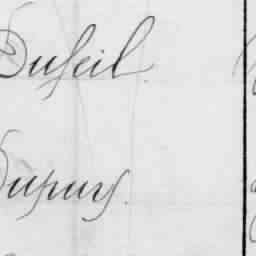 Duseil.
Dupuy.